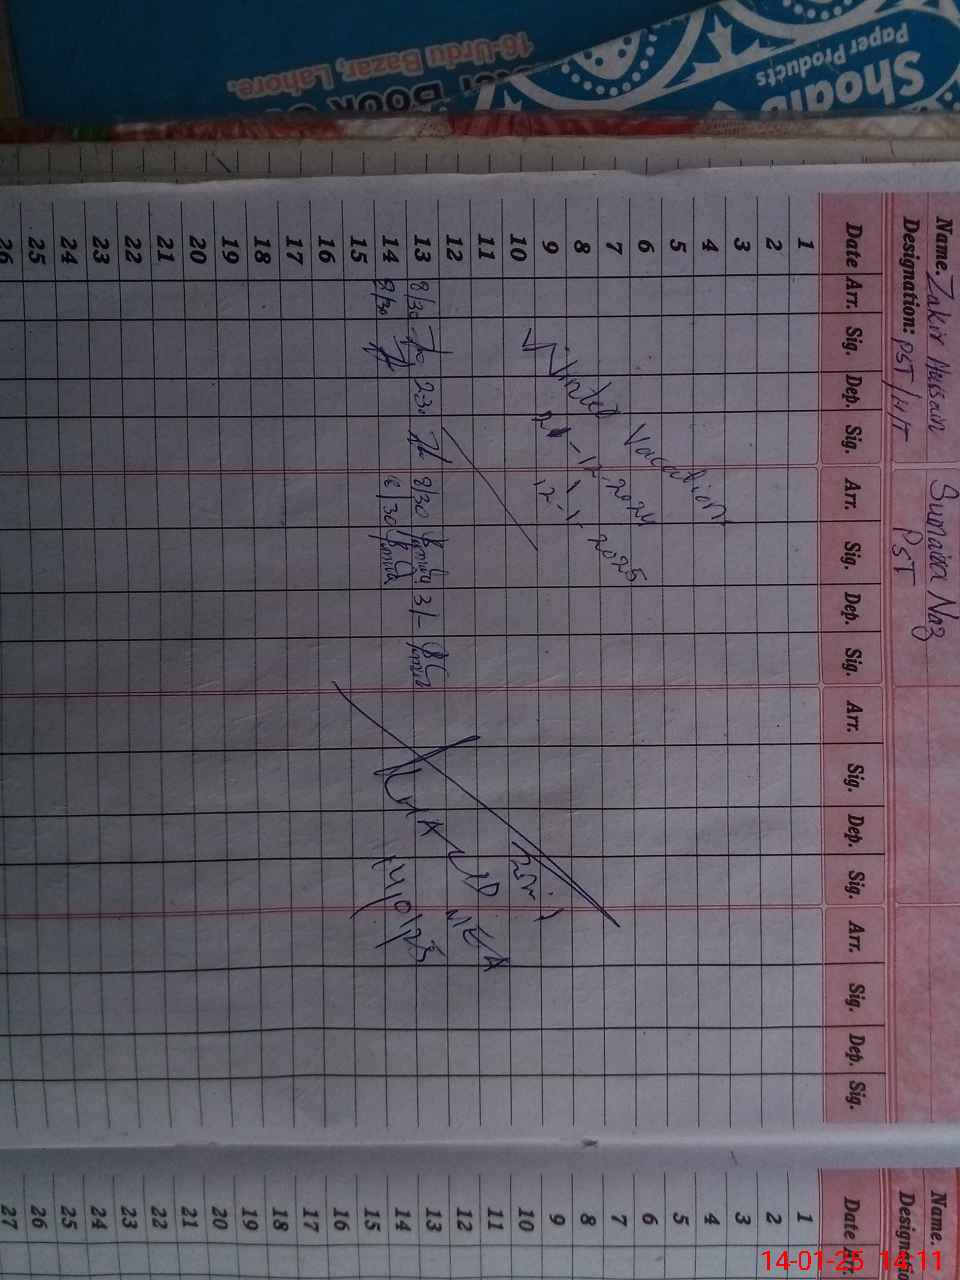 Shoaib
Paper Products
16-Urdu Bazar, Lahore.
Name. Zakir Hussain Sumaira Naz
Designation: PST/H/T PST
Date Arr. Sig. Dep. Sig. Arr. Sig. Dep. Sig. Arr. Sig. Dep. Sig. Arr. Sig. Dep. Sig.
1
2
3
4
5
6
7
8
9
10
11
12
13 8/30 230 8/30 3/-
14 8/30 8/30
15
16
17
18
19
20
21
22
23
24
25
26
Winter Vacation
21-12-2024
12-1-2025
Visit
MEA
14/01/25
Name.
Date Arr.
1
2
3
4
5
6
7
8
9
10
11
12
13
14
15
16
17
18
19
20
21
22
23
24
25
26
27
14-01-25 14:11